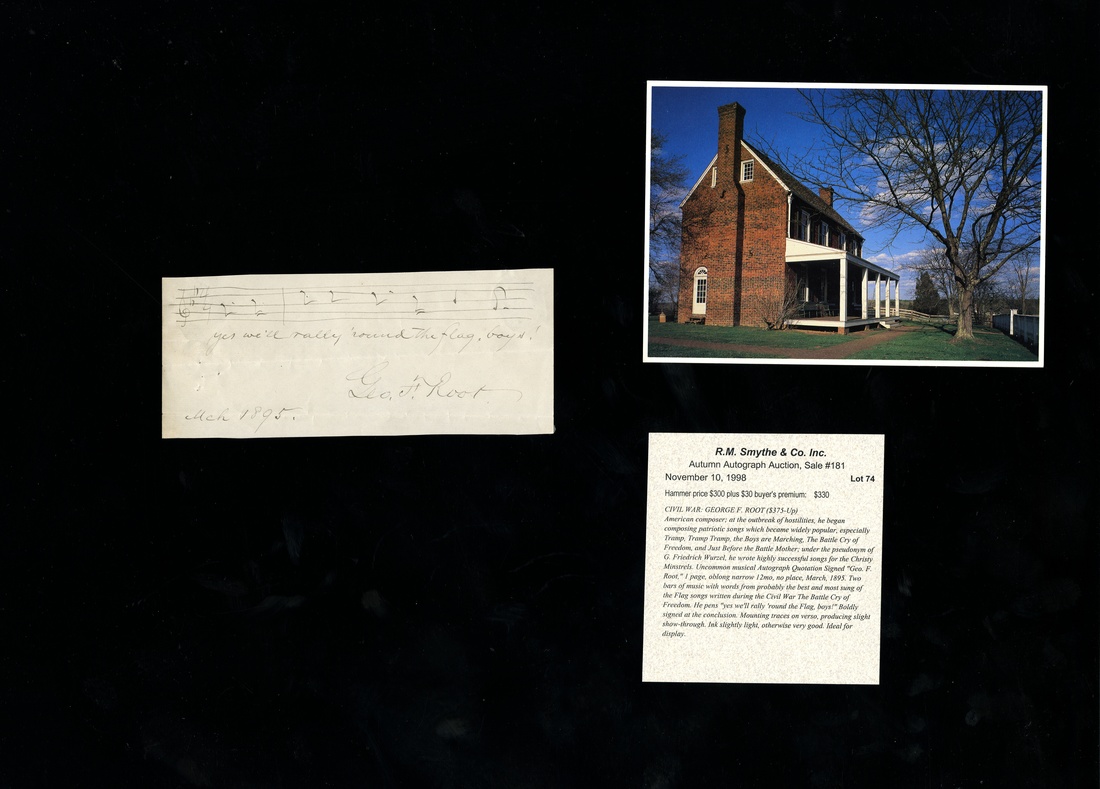 yes we'll rally 'round the flag, boys!
Geo. F. Root
Mch 1895.
R.M. Smythe & Co. Inc.
Autumn Autograph Auction, Sale #181
November 10, 1998 Lot 74
Hammer price $300 plus $30 buyer's premium: $330
CIVIL WAR: GEORGE F. ROOT ($375-Up)
American composer; at the outbreak of hostilities, he began
composing patriotic songs which became widely popular, especially
Tramp, Tramp Tramp, the Boys are Marching, The Battle Cry of
Freedom, and Just Before the Battle Mother; under the pseudonym of
G. Friedrich Wurzel, he wrote highly successful songs for the Christy
Minstrels. Uncommon musical Autograph Quotation Signed "Geo. F.
Root," 1 page, oblong narrow 12mo, no place, March, 1895. Two
bars of music with words from probably the best and most sung of
the Flag songs written during the Civil War The Battle Cry of
Freedom. He pens "yes we'll rally 'round the Flag, boys!" Boldly
signed at the conclusion. Mounting traces on verso, producing slight
show-through. Ink slightly light, otherwise very good. Ideal for
display.